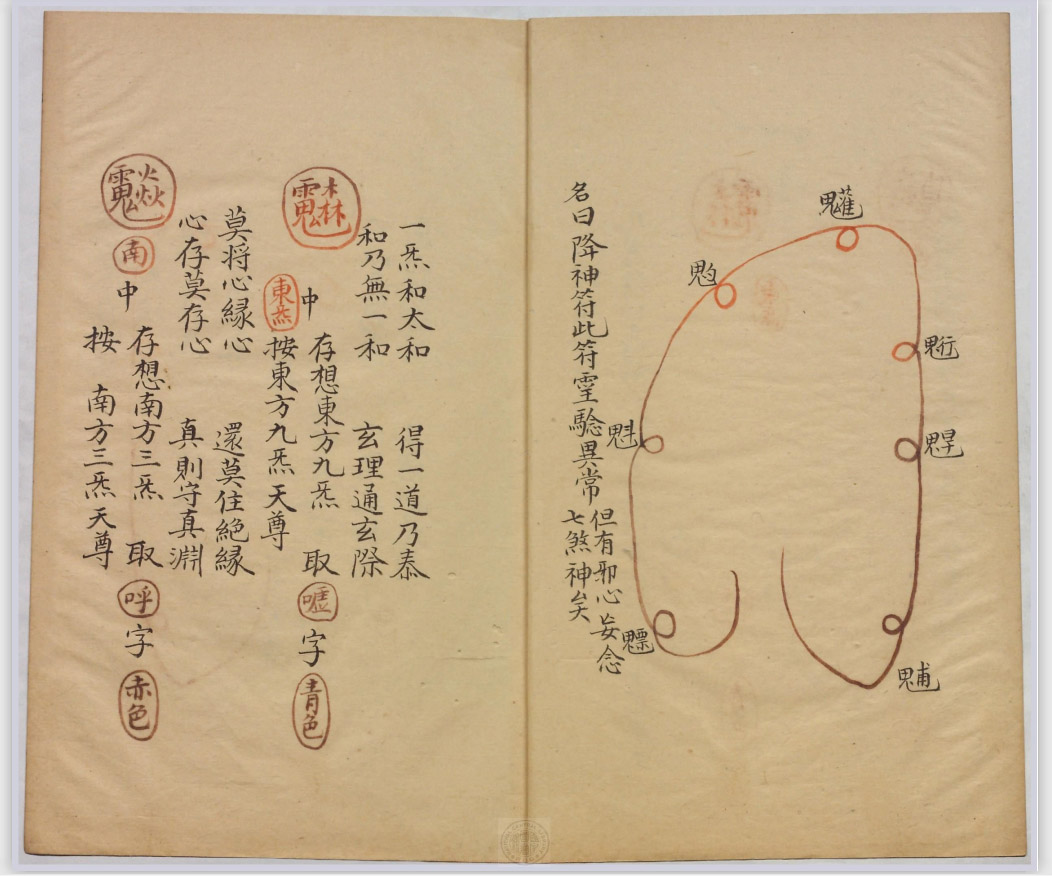 魁
魒
名曰降神符此符霊驗異常
但有邪心妄念
七煞神矣
一炁和太和 得一道乃泰
和乃無一和 玄理通玄際
中 存想東方九炁 取 嘘 字 青色
東炁 按東方九炁天尊
莫将心縁心 還莫住絶縁
心存莫存心 真則守真淵
南 中 存想南方三炁 取 呼 字 赤色
按 南方三炁天尊